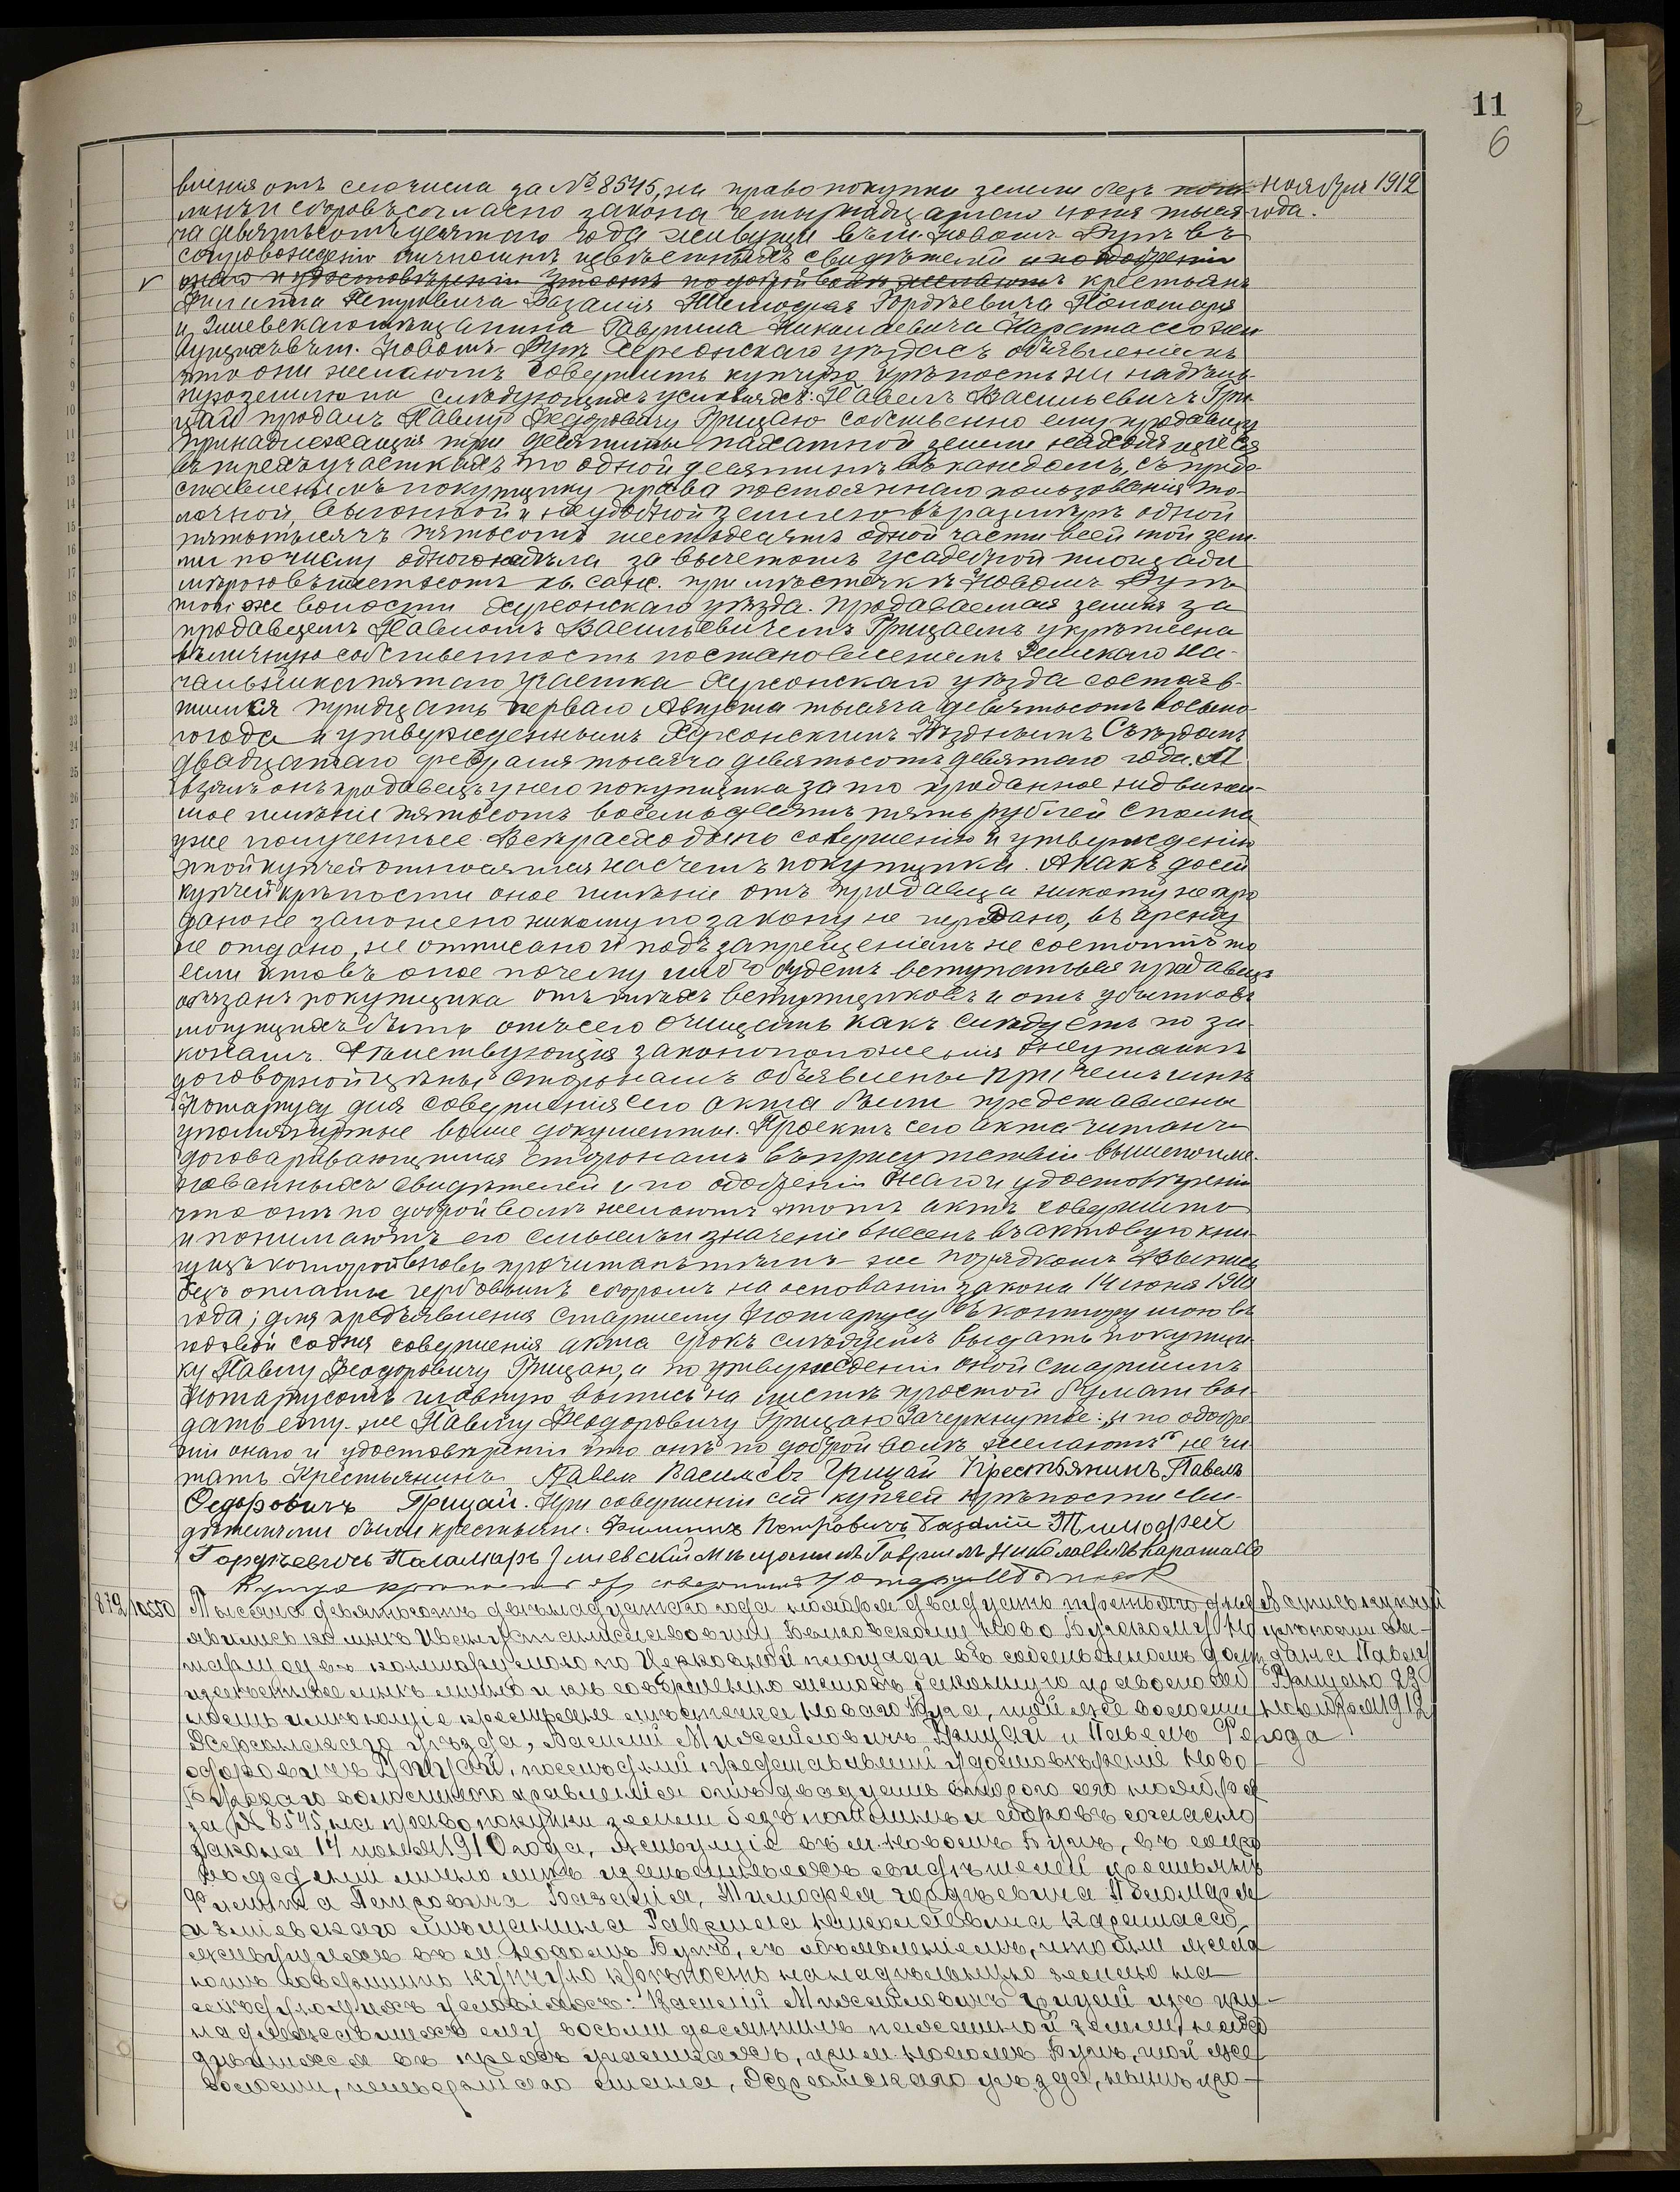 11
6
вленія отъ сего числа за № 8545, на право покупки земли безъ пош-
ноября 1912
линъ и сборовъ согласно закона четырнадцатаго іюня тыся-
года.
ча девятьсотъ десятаго года живущіе въ м. Новомъ Бугѣ въ
сопровожденіи лично мнѣ извѣстныхъ свидѣтелей и по одобреніи
онаго и удостовѣреніи что онѣ по доброй волѣ желаютъ крестьянъ
Филиппа Петровича Базалія Тимофея Гордѣевича Паламаря
и Змиевскаго мѣщанина Гавріила Николаевича Карамассо жи-
вущихъ въ м. Новомъ Бугѣ Херсонскаго уѣзда съ объявленіемъ
что они желаютъ совершить купчую крѣпость на надѣль-
ную землю на слѣдующихъ условіяхъ: Павелъ Васильевичъ Гри-
цай продалъ Павлу Федоровичу Грицаю собственно ему продавцу
принадлежащія три десятины пахатной земли находящіеся
въ трехъ участкахъ по одной десятинѣ въ каждомъ, съ предо-
ставленіемъ покупщику права постояннаго пользованія то-
лочной, выгонной и неудобной землею въ размѣрѣ одной
пятьтысячъ пятьсотъ шестьдесятъ одной части всей той зем-
ли по числу одного надѣла за вычетомъ усадебной площади
мѣрою въ шестьсотъ кв. саж. при мѣстечкѣ Новомъ Бугѣ
той же волости Херсонскаго уѣзда. Продаваемая земля за
продавцемъ Павломъ Васильевичемъ Грицаемъ укрѣплена
въ личную собственность постановленіемъ Земскаго На-
чальника пятаго участка Херсонскаго уѣзда состояв-
шимся тридцать перваго Августа тысяча девятьсотъ восьмо-
го года и утвержденнымъ Херсонскимъ Уѣзднымъ Съѣздомъ
двадцатаго февраля тысяча девятьсотъ девятаго года. А
взялъ онъ продавецъ у него покупщика за то проданное недвижи-
мое имѣніе пятьсотъ восемьдесятъ пять рублей сполна
уже полученные. Всѣ расходы по совершенію и утвержденію
этой купчей относятся на счетъ покупщика. А какъ до сей
купчей крѣпости оное имѣніе отъ продавца никому не про
дано не заложено никому по закону не передано, въ аренду
не отдано, не отписано и подъ запрещеніемъ не состоитъ то
если кто въ оное почему либо будетъ вступаться продавецъ
обязанъ покупщика отъ тѣхъ вступщиковъ и отъ убытковъ
могущихъ быть отъ сего очищать какъ слѣдуетъ по за-
конамъ. Дѣйствующія законоположенія о неутайкѣ
договорной цѣны сторонамъ объявлены при чемъ мнѣ
Нотаріусу для совершенія сего акта были представлены
упомянутые выше документы. Проектъ сего акта читанъ
договаривающимся сторонамъ въ присутствіи вышепоиме-
нованныхъ свидѣтелей и по одобреніи онаго и удостовѣреніи
что онѣ по доброй волѣ желаютъ этотъ актъ совершить
и понимаютъ его смыслъ и значеніе внесенъ въ актовую кни-
гу изъ которой вновь прочитанъ тѣмъ же порядкомъ. Выпись
безъ оплаты гербовымъ сборомъ на основаніи закона 14 іюня 1910
года; для предъявленія Старшему Нотаріусу въ контору мою въ
годовой со дня совершенія акта срокъ слѣдуетъ выдать покупщи-
ку Павлу Феодоровичу Грицаю, а по утвержденіи оной Старшимъ
Нотаріусомъ главную выпись на листѣ простой бумаги вы-
дать ему-же Павлу Феодоровичу Грицаю. Зачеркнутое: „и по одобре-
ніи онаго и удостовѣреніи что онѣ по доброй волѣ желаютъ“ не чи-
тать. Крестьянинъ Павелъ Васильевъ Грицай Крестьянинъ Павелъ
Федоровичъ Грицай. При совершеніи сей купчей крѣпости сви-
дѣтелями были крестьяне: Филиппъ Петровичъ Базалій Тимофей
Гордѣевичъ Паламарь Змиевскій мѣщанинъ Гавріилъ Николаевичъ Карамассо
Нотаріусъ
872 10550
Тысяча девятьсотъ двѣнадцатаго года ноября двадцать третьяго дня
Выпись купчей
явились ко мнѣ Ивану Станиславовичу Бенковскому Ново Бугскому Но
крѣпости вы-
таріусу въ контору мою по Церковной площади въ собственномъ домѣ
дана Павлу
извѣстные мнѣ лично и къ совершенію актовъ законную правоспособ
Грицаю 23
ность имѣющіе крестьяне мѣстечка Новаго Буга, той же волости
ноября 1912
Херсонскаго уѣзда, Василій Михайловичъ Грицай и Павелъ Фе
года
одоровичъ Грицай, послѣдній представившій удостовѣреніе Ново
Бугскаго волостного правленія отъ двадцать второго сего ноября
за № 8545, на право покупки земли безъ пошлинъ и сборовъ согласно
закона 14 іюня 1910 года, живущіе въ м. Новомъ Бугѣ, въ сопро
вожденіи лично мнѣ извѣстныхъ свидѣтелей крестьянъ
Филиппа Петровича Базалія, Тимофея Гордѣевича Паламаря
и Зміевскаго мѣщанина Гавріила Николаевича Карамассо,
живущихъ въ м. Новомъ Бугѣ, съ объявленіемъ, что они жела
ютъ совершить купчую крѣпость на надѣльную землю на
слѣдующихъ условіяхъ: Василій Михайловичъ Грицай изъ при-
надлежавшихъ ему восьми десятинъ пахатной земли, нахо
дящихся въ трехъ участкахъ, при м. Новомъ Бугѣ, той же
волости, четвертаго стана, Херсонскаго уѣзда, нынѣ про-